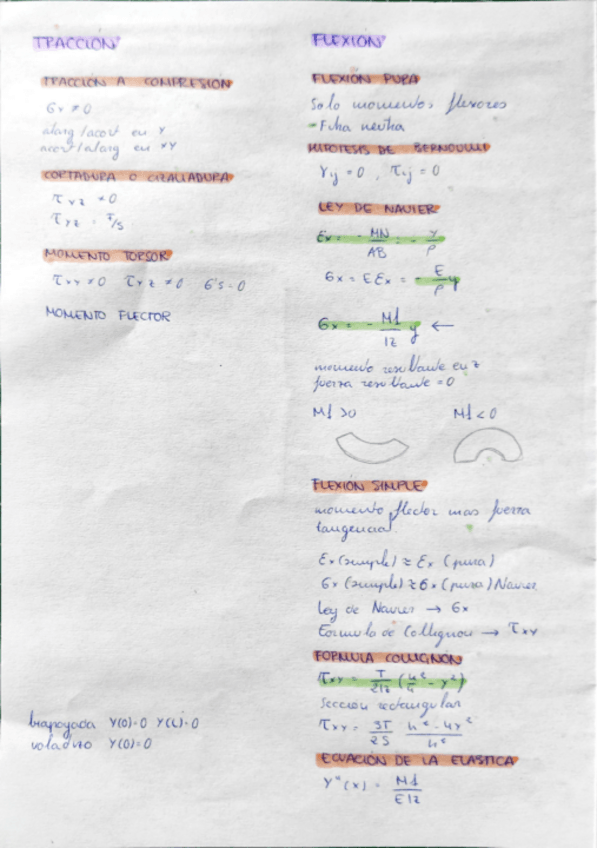 TRACCIÓN
TRACCIÓN A COMPRESIÓN
σx ≠ 0
alarg/acort en x
acort/alarg en xy
CORTADURA O CIZALLADURA
τyz ≠ 0
τyz = T/S
MOMENTO TORSOR
τxy ≠ 0 τxz ≠ 0 σ's = 0
MOMENTO FLECTOR
biapoyada y(0)=0 y(L)=0
voladizo y(0)=0
FLEXIÓN
FLEXIÓN PURA
Solo momentos flexores
- Fibra neutra
HIPOTESIS DE BERNOULLI
γij = 0 , τij = 0
LEY DE NAVIER
εx = - MN/AB = - y/ρ
σx = E εx = - E/ρ y
σx = - Mf/Iz y ←
momento resultante en z
fuerza resultante = 0
Mf > 0 Mf < 0
FLEXIÓN SIMPLE
momento flector mas fuerza
tangencial.
εx (simple) ≈ εx (pura)
σx (simple) ≈ σx (pura) Navier
Ley de Navier → σx
Formula de Collignon → τxy
FORMULA COLLIGNÓN
τxy = T/2Iz (h²/4 - y²)
Sección rectangular
τxy = 3T/2S h² - 4y²/h²
ECUACIÓN DE LA ELASTICA
y"(x) = Mf/EIz